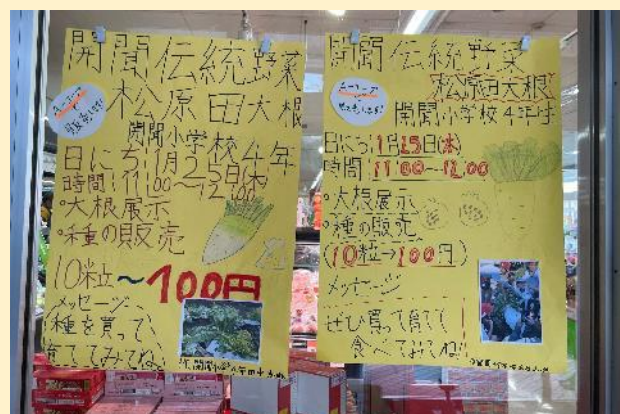 開聞伝統野菜
販売します!
松原田大根
開聞小学校4年
日にち1月25日(木)
時間:11:00~12:00
・大根展示
・種の販売
10粒~100円
メッセージ
種を買って
育ててみてね!
開聞伝統野菜
販売します!
松原田大根
開聞小学校4年生
日にち:1月25日(木)
時間:11:00~12:00
・大根展示
・種の販売
(10粒→100円)
メッセージ
ぜひ買って育てて
食べてみてね!!